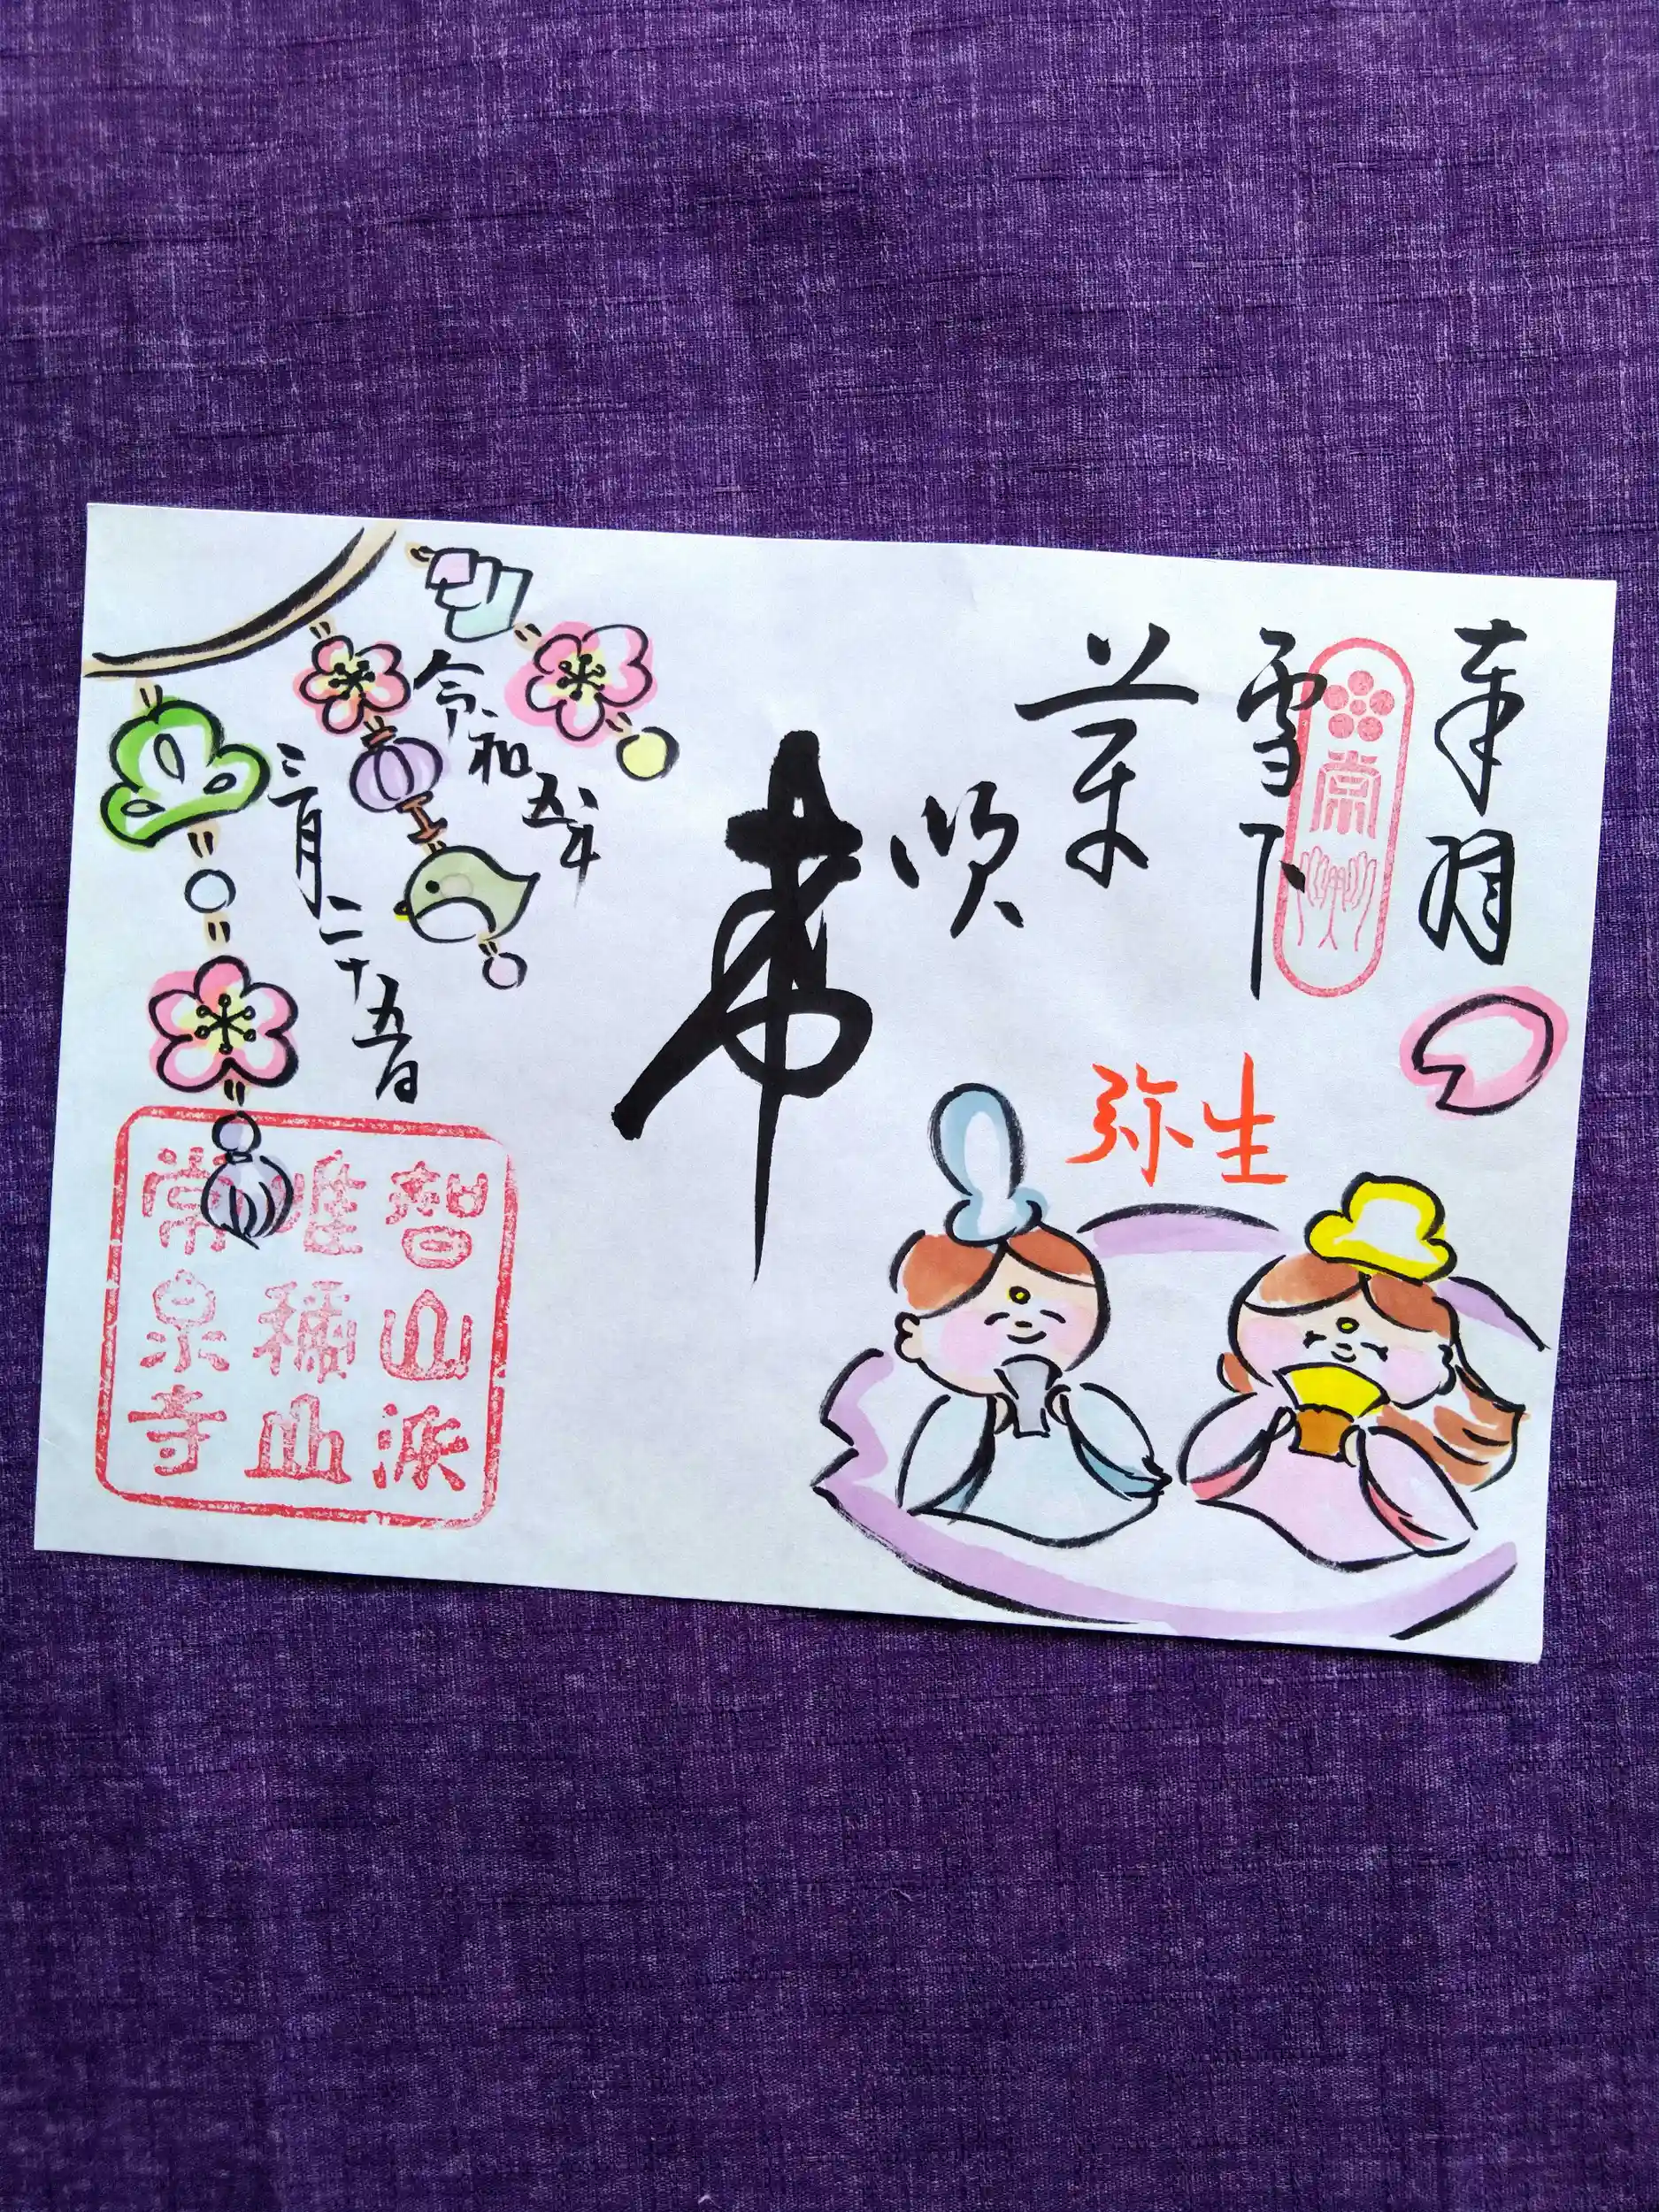 奉拝
常
雪下
芽
吹
希
弥生
令和五年
三月二十五日
智山派
唯稱山
常泉寺